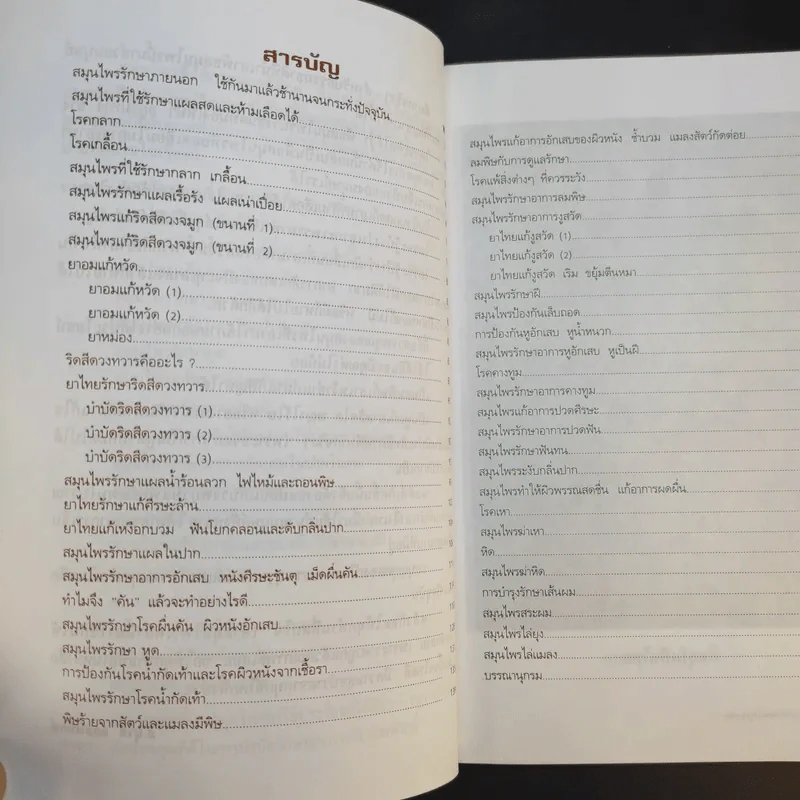 สารบัญ
สมุนไพรรักษาภายนอก ใช้กันมาแล้วช้านานจนกระทั่งปัจจุบัน
สมุนไพรที่ใช้รักษาแผลสดและห้ามเลือดได้
โรคกลาก
โรคเกลื้อน
สมุนไพรที่ใช้รักษากลาก เกลื้อน
สมุนไพรรักษาแผลเรื้อรัง แผลเน่าเปื่อย
สมุนไพรแก้ริดสีดวงจมูก (ขนานที่ 1)
สมุนไพรแก้ริดสีดวงจมูก (ขนานที่ 2)
ยาอมแก้หวัด
ยาอมแก้หวัด (1)
ยาอมแก้หวัด (2)
ยาหม่อง
ริดสีดวงทวารคืออะไร ?
ยาไทยรักษาริดสีดวงทวาร
บำบัดริดสีดวงทวาร (1)
บำบัดริดสีดวงทวาร (2)
บำบัดริดสีดวงทวาร (3)
สมุนไพรรักษาแผลน้ำร้อนลวก ไฟไหม้และถอนพิษ
ยาไทยรักษาแก้ศีรษะล้าน
ยาไทยแก้เหงือกบวม ฟันโยกคลอนและดับกลิ่นปาก
สมุนไพรรักษาแผลในปาก
สมุนไพรรักษาอาการอักเสบ หนังศีรษะชันตุ เม็ดผื่นคัน
ทำไมจึง "คัน" แล้วจะทำอย่างไรดี
สมุนไพรรักษาโรคผื่นคัน ผิวหนังอักเสบ
สมุนไพรรักษา หูด
การป้องกันโรคน้ำกัดเท้าและโรคผิวหนังจากเชื้อรา
สมุนไพรรักษาโรคน้ำกัดเท้า
พิษร้ายจากสัตว์และแมลงมีพิษ
สมุนไพรแก้อาการอักเสบของผิวหนัง ช้ำบวม แมลงสัตว์กัดต่อย
ลมพิษกับการดูแลรักษา
โรคแพ้สิ่งต่างๆ ที่ควรระวัง
สมุนไพรรักษาอาการลมพิษ
สมุนไพรรักษาอาการงูสวัด
ยาไทยแก้งูสวัด (1)
ยาไทยแก้งูสวัด (2)
ยาไทยแก้งูสวัด เริม ขยุ้มตีนหมา
สมุนไพรรักษาฝี
สมุนไพรป้องกันเล็บถอด
การป้องกันหูอักเสบ หูน้ำหนวก
สมุนไพรรักษาอาการหูอักเสบ หูเป็นฝี
โรคคางทูม
สมุนไพรรักษาอาการคางทูม
สมุนไพรแก้อาการปวดศีรษะ
สมุนไพรรักษาอาการปวดฟัน
สมุนไพรรักษาฟันทน
สมุนไพรระงับกลิ่นปาก
สมุนไพรทำให้ผิวพรรณสดชื่น แก้อาการผดผื่น
โรคเหา
สมุนไพรฆ่าเหา
หิด
สมุนไพรฆ่าหิด
การบำรุงรักษาเส้นผม
สมุนไพรสระผม
สมุนไพรไล่ยุง
สมุนไพรไล่แมลง
บรรณานุกรม